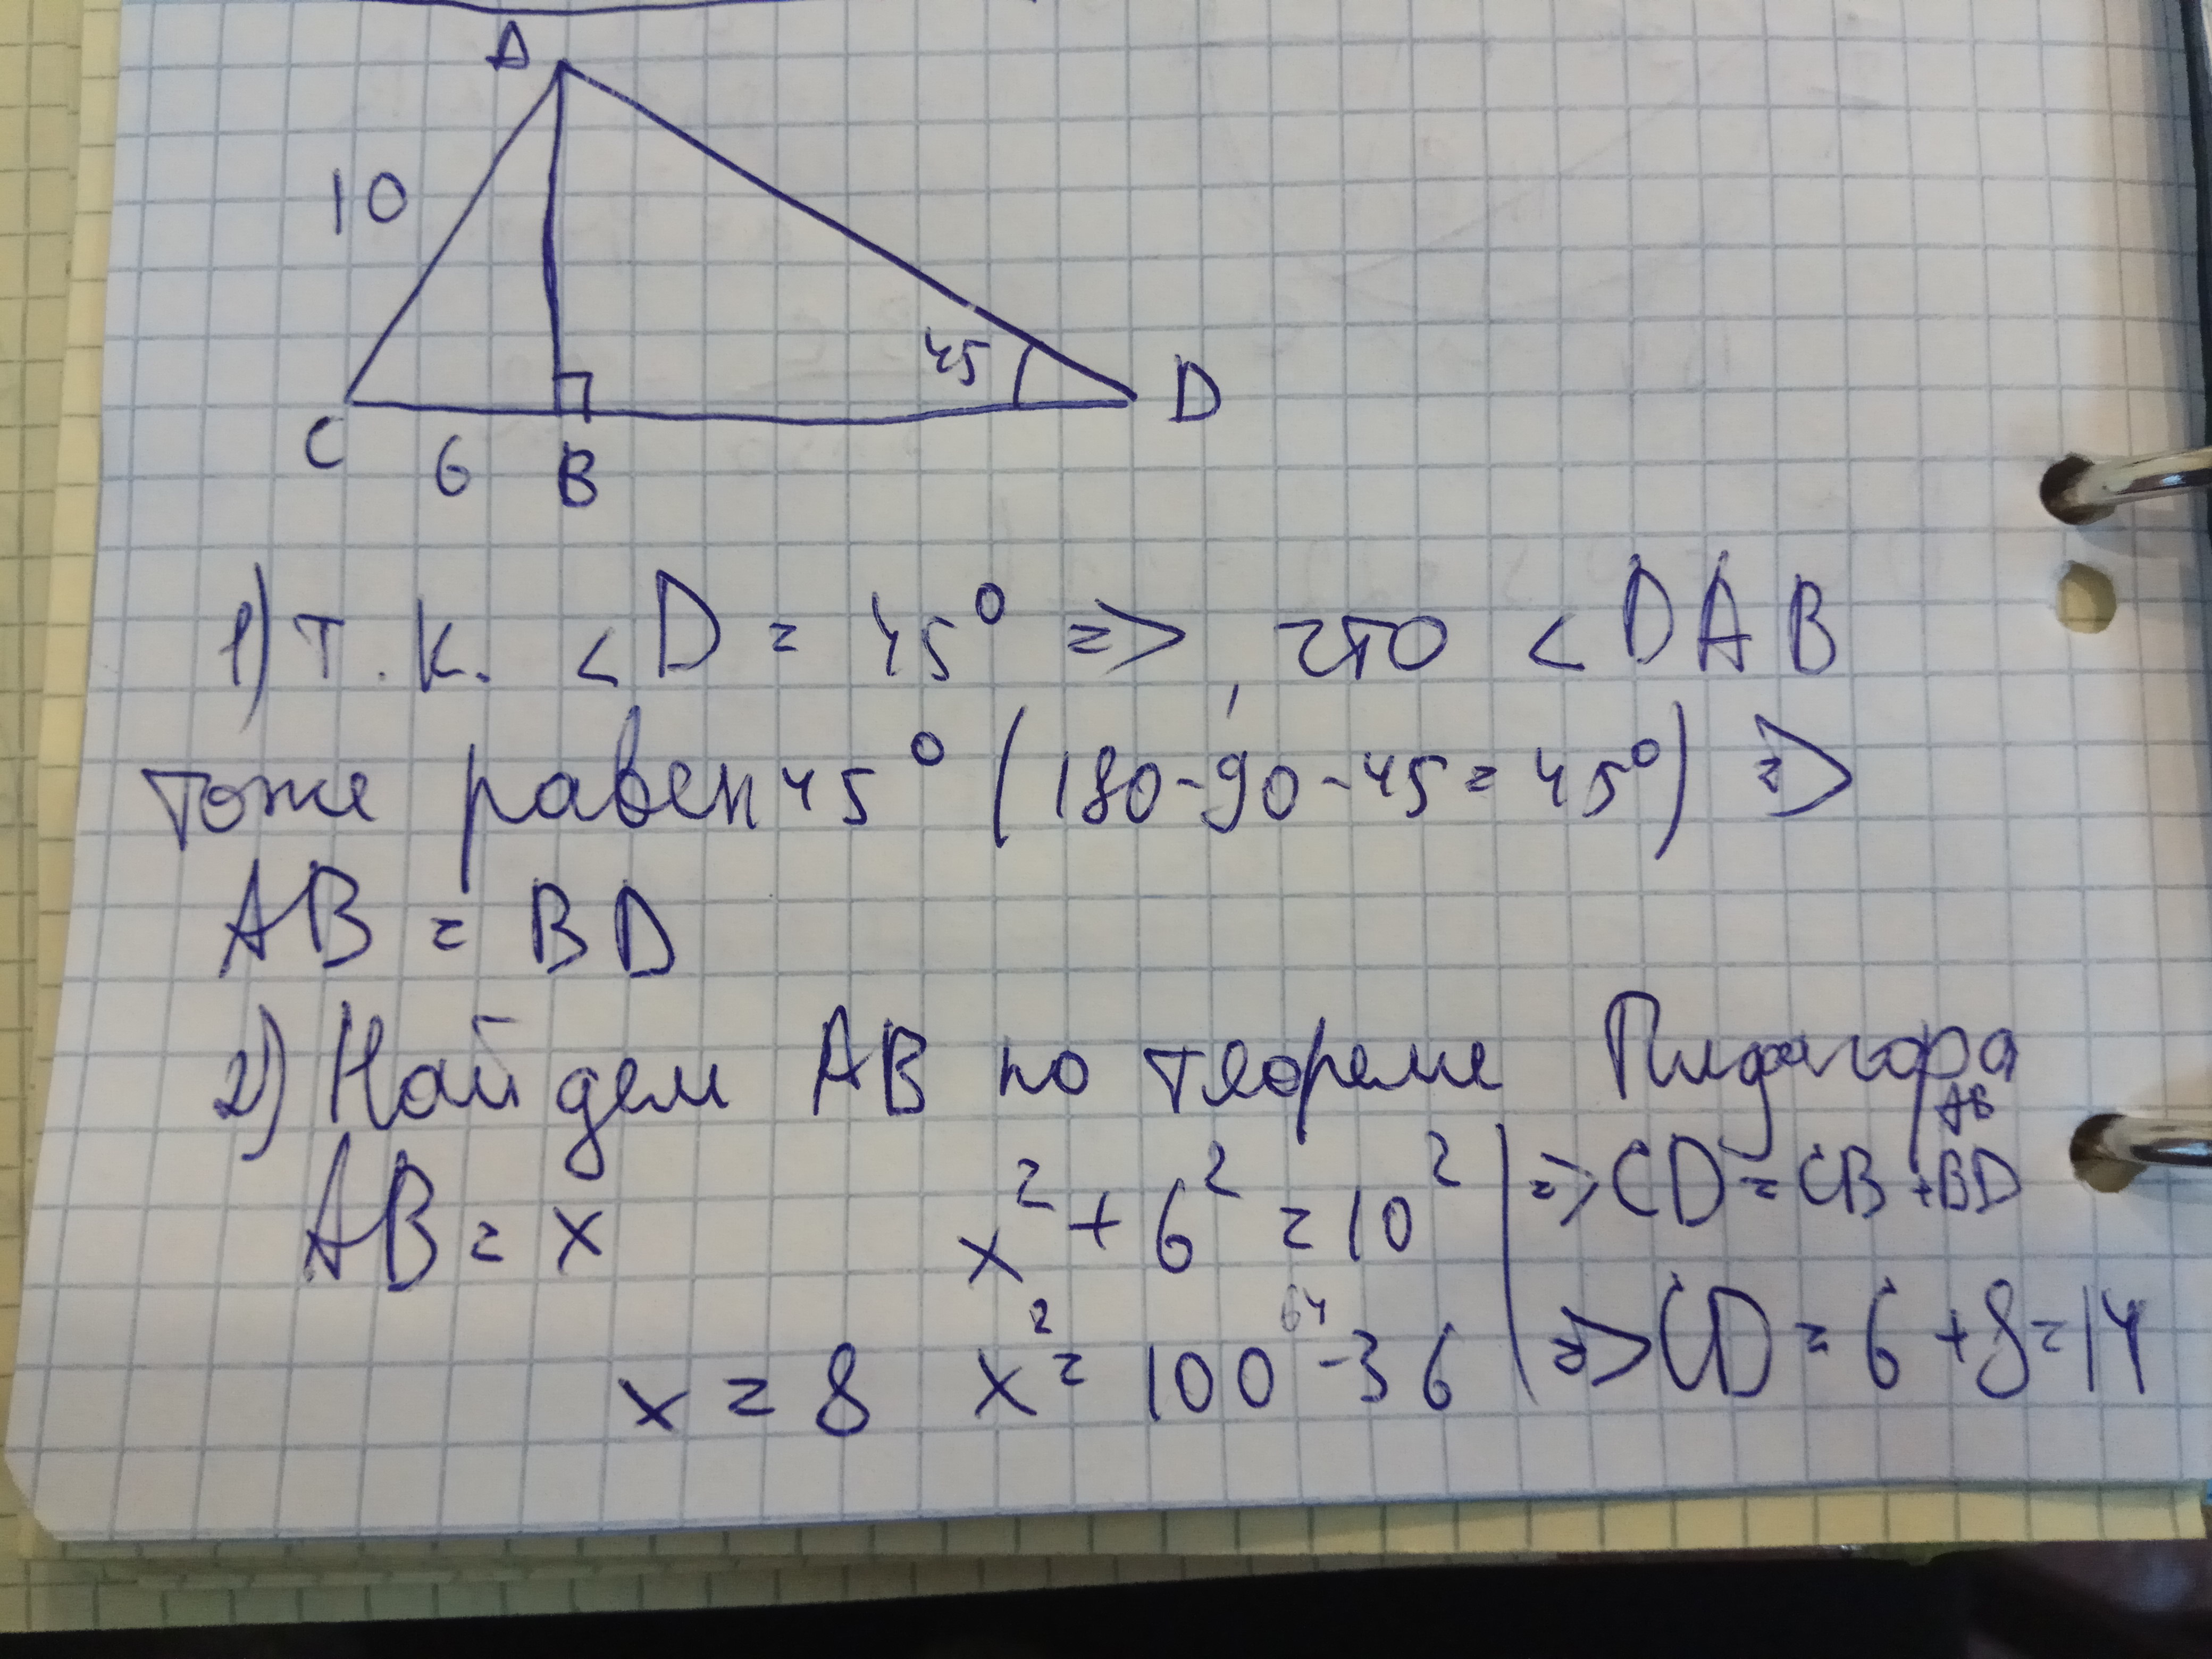 A
10
45
D
C 6 B
1) т.к. < D = 45° =>, что < DAB
тоже равен 45° (180-90-45=45°) =>
AB = BD
2) Найдем AB по теореме Пидагора
AB
AB = x x² + 6² = 10² => CD = CB + BD
64
x = 8 x² = 100 - 36 => CD = 6 + 8 = 14